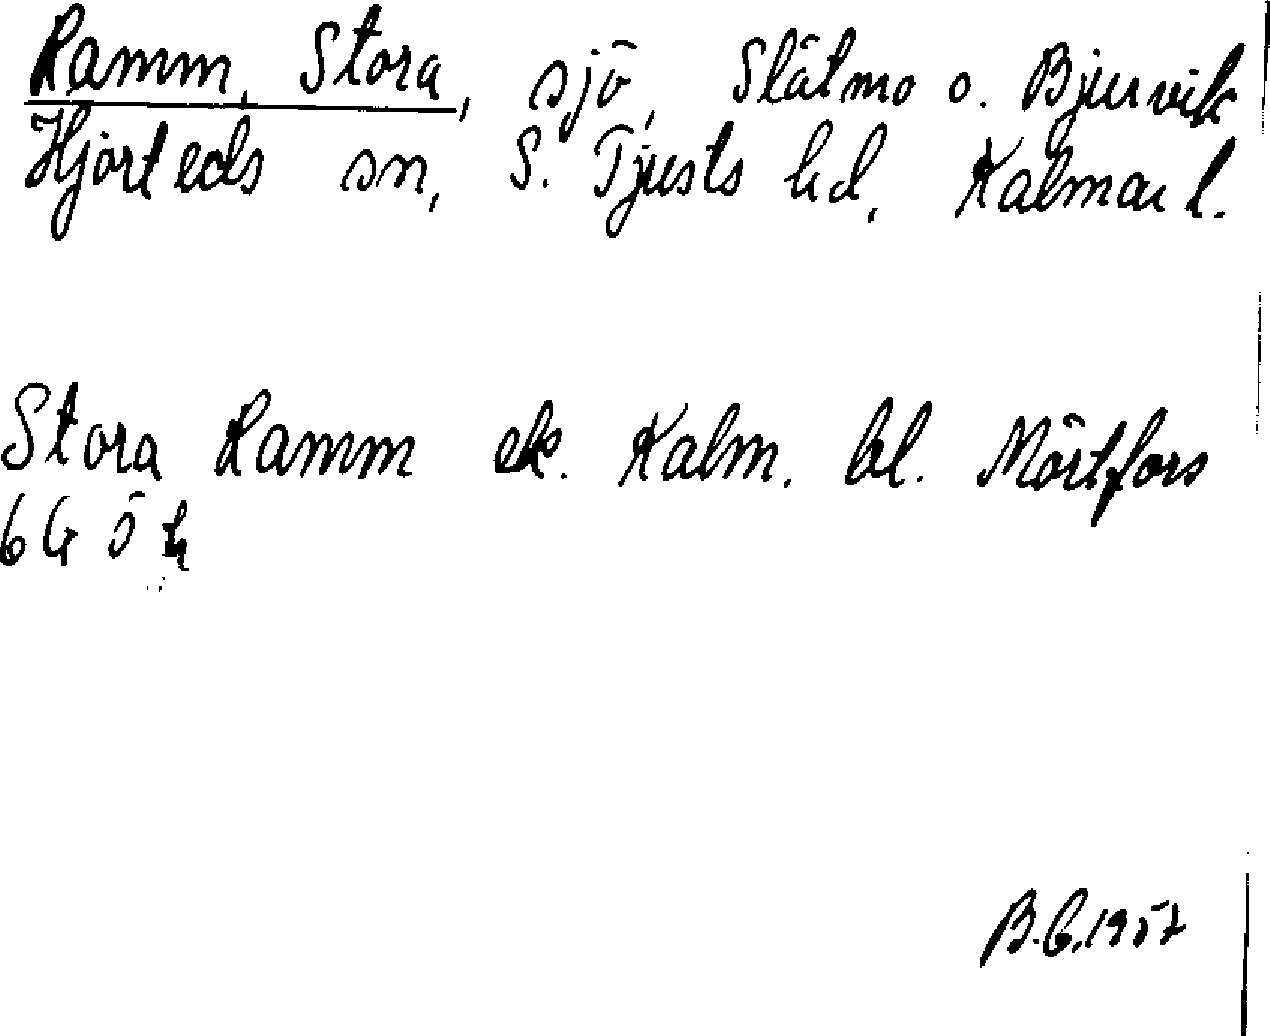 Ramm, Stora, sjö, Slätmo o. Bjurvik
Hjorteds sn, S. Tjusts hd, Kalmar l.
Stora Ramm ek. Kalm. bl. Mörtfors
6G ö h
B.C. 1957